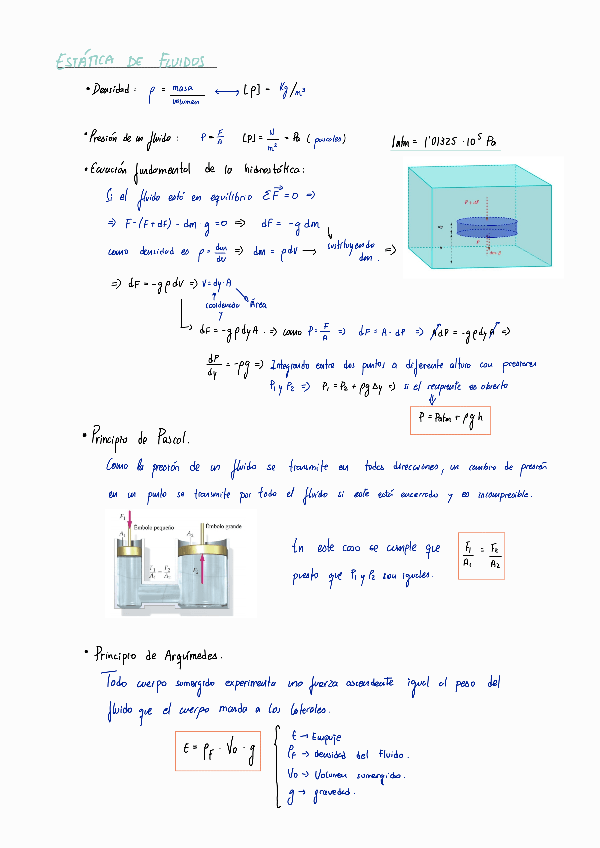 ESTÁTICA DE FLUIDOS
• Densidad: ρ = masa/volumen ⟷ [ρ] = Kg/m³
• Presión de un fluido: P = F/A [P] = N/m² = Pa (pascales) 1 atm = 1'01325 · 10⁵ Pa
• Ecuación fundamental de la hidrostática:
Si el fluido está en equilibrio ΣF⃗ = 0 ⇒
⇒ F-(F+dF) - dm g = 0 ⇒ dF = -g dm
como densidad es ρ = dm/dV ⇒ dm = ρdV → sustituyendo dm. ⇒
⇒ dF = -gρdV ⇒ V = dy·A
coordenada y Área
dF = -gρdyA ⇒ como P = F/A ⇒ dF = A·dP ⇒ AdP = -gρdyA ⇒
dP/dy = -ρg ⇒ Integrando entre dos puntos a diferente altura con presiones
P₁ y P₂ ⇒ P₁ = P₂ + ρgΔy ⇒ si el recipiente es abierto
P = Patm + ρgh
• Principio de Pascal.
Como la presión de un fluido se transmite en todas direcciones, un cambio de presión
en un punto se transmite por todo el fluido si este está encerrado y es incompresible.
F₁
A₁ Émbolo pequeño A₂ Émbolo grande
F₁/A₁ = F₂/A₂
F₂
En este caso se cumple que F₁/A₁ = F₂/A₂
puesto que P₁ y P₂ son iguales.
• Principio de Arquímedes.
Todo cuerpo sumergido experimenta una fuerza ascendente igual al peso del
fluido que el cuerpo manda a los laterales.
E = ρF · V₀ · g
E → Empuje
ρF → densidad del fluido.
V₀ → Volumen sumergido.
g → gravedad.